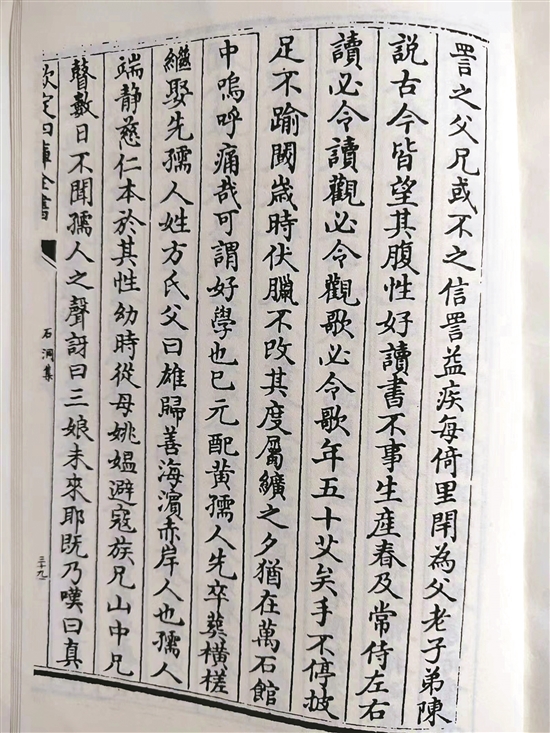 詈之父兄或不之信詈益疾每倚里閈為父老子弟陳
説古今皆望其腹性好讀書不事生産春及常侍左右
讀必令讀觀必令觀歌必令歌年五十艾矣手不停披
足不踰閾歳時伏臘不改其度屬纊之夕猶在萬石館
中嗚呼痛哉可謂好學也已元配黄孺人先卒葬橫槎
繼娶先孺人姓方氏父曰雄歸善海濵赤岸人也孺人
端静慈仁本於其性幼時從母姚媪避寇族兄山中兄
瞽數日不聞孺人之聲訝曰三娘未來耶既乃嘆曰真
欽定四庫全書
石洞集
三十九